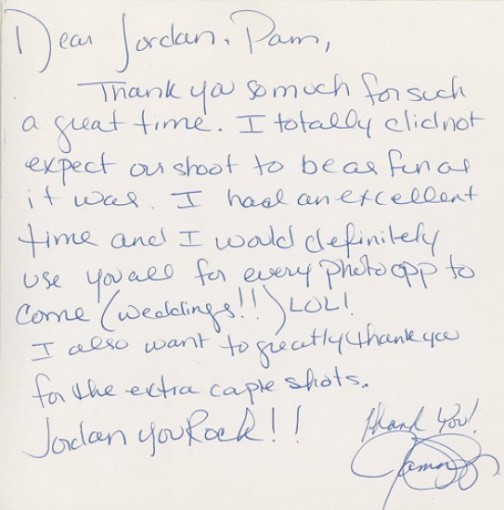 Dear Jordan, Pam,
Thank ya so much for such
a great time. I totally did not
expect our shoot to be as fun as
it was. I had an excellent
time and I would definitely
use you all for every photo opp to
come (weddings!!) LOL!
I also want to greatly thank you
for the extra capie shots.
Jordan you Rock!!
Thank You!